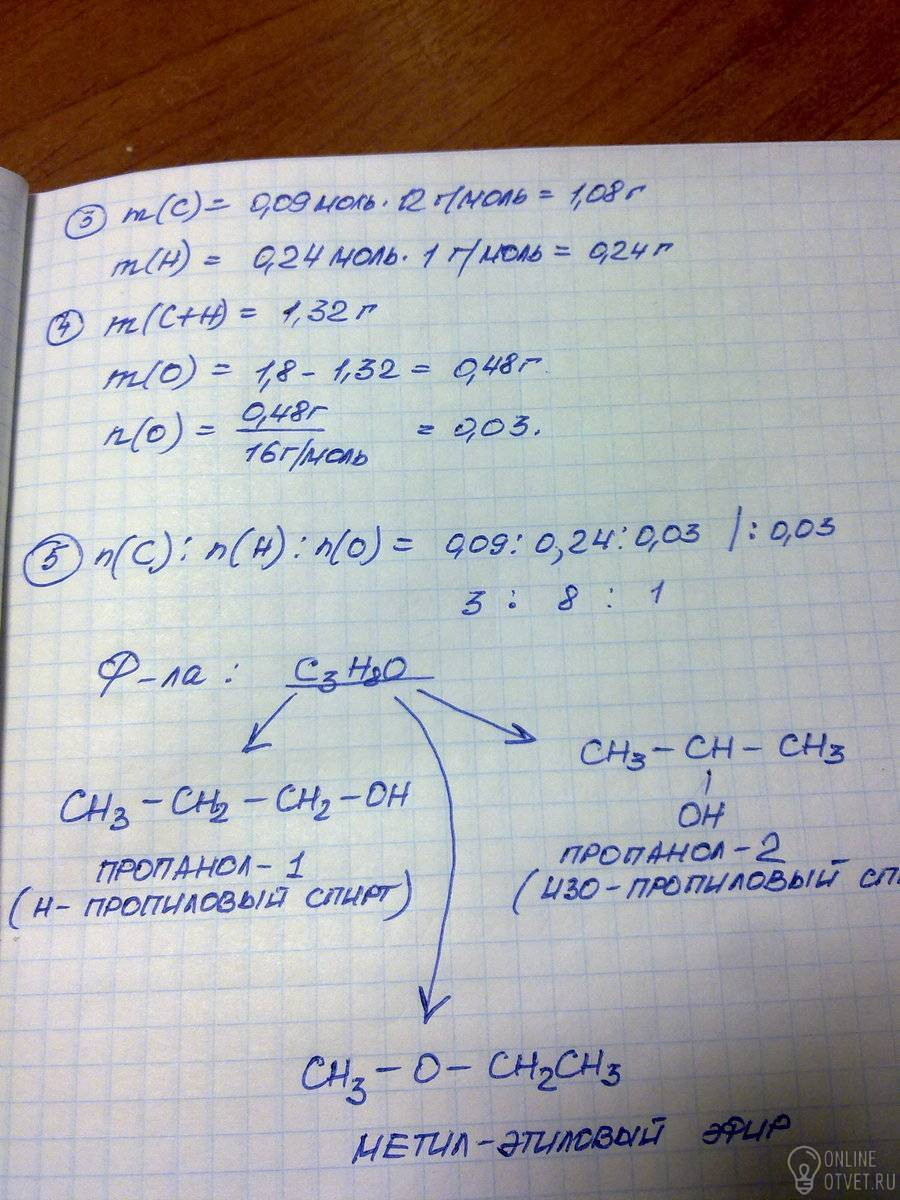 ③ m(C) = 0,09 моль · 12 г/моль = 1,08 г
m(H) = 0,24 моль · 1 г/моль = 0,24 г
④ m(C+H) = 1,32 г
m(O) = 1,8 - 1,32 = 0,48 г.
n(O) = 0,48 г / 16 г/моль = 0,03.
⑤ n(C) : n(H) : n(O) = 0,09 : 0,24 : 0,03 | : 0,03
3 : 8 : 1
Ф-ла : C₃H₈O
CH₃ – CH – CH₃
OH
CH₃ – CH₂ – CH₂ – OH
ПРОПАНОЛ - 1
(Н- ПРОПИЛОВЫЙ СПИРТ)
ПРОПАНОЛ - 2
(ИЗО - ПРОПИЛОВЫЙ СП
CH₃ – O – CH₂CH₃
МЕТИЛ-ЭТИЛОВЫЙ ЭФИР
ONLINE
OTVET.RU